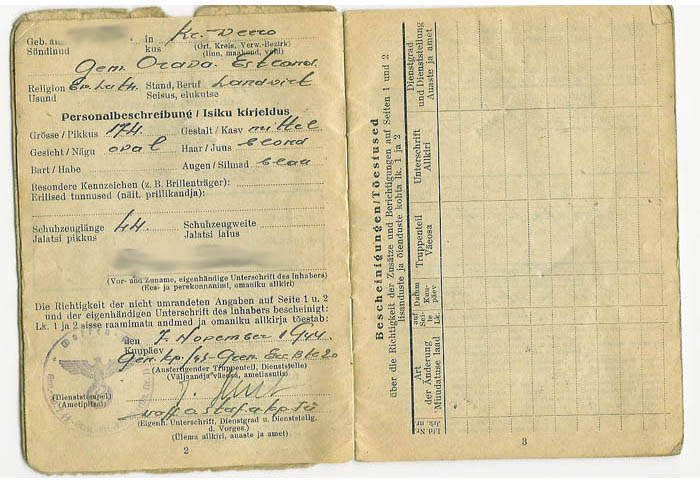 Geb. a in Kr. Werro
Sündinud kus (Ort, Kreis, Verw.-Bezirk)
(linn, maakond, vald)
Gem. Orava. Estland.
Religion Ev. Luth. Stand, Beruf Landwirt
Usund Seisus, elukutse
Personalbeschreibung / Isiku kirjeldus
Grösse / Pikkus 174. Gestalt / Kasv mittel
Gesicht / Nägu oval Haar / Juus blond
Bart / Habe Augen / Silmad blau
Besondere Kennzeichen (z. B. Brillenträger):
Erilised tunnused (näit. prillikandja):
Schuhzeuglänge 44 Schuhzeugweite
Jalatsi pikkus Jalatsi laius
(Vor- und Zuname, eigenhändige Unterschrift des Inhabers)
(Ees- ja perekonnanimi, omaniku allkiri)
Die Richtigkeit der nicht umrandeten Angaben auf Seite 1 u. 2
und der eigenhändigen Unterschrift des Inhabers bescheinigt:
Lk. 1 ja 2 sisse raamimata andmed ja omaniku allkirja tõestab:
den 7. November 1944
Kuupäev
(Ausfertigender Truppenteil, Dienststelle)
(Väljaandja väeosa, ametiasutis)
(Dienststempel)
(Ametipitsat)
(Eigenh. Unterschrift, Dienstgrad u. Dienststellg.
d. Vorges.)
(Ülema allkiri, auaste ja amet)
2
Bescheinigungen/Tõestused
über die Richtigkeit der Zusätze und Berichtigungen auf Seiten 1 und 2
lisanduste ja õienduste kohta lk. 1 ja 2
Lfd. Nr.
Jrk. nr.
Art
der Änderung
Muudatuse laad
auf
Sei-
te
Lk.
Datum
Kuu-
päev
Truppenteil
Väeosa
Unterschrift
Allkiri
Dienstgrad
und Dienststellung
Auaste ja amet
3